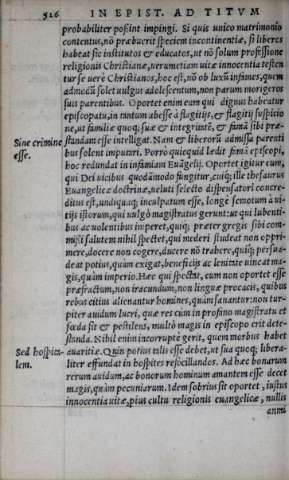 526 IN EPIST. AD TITVM
probabiliter poßint impingi. Si quis unico matrimonio
contentus, nõ præbuerit specim incontinentiæ, si liberos
habeat sic institutos & educatos, ut nõ solum professione
religionis Christianæ, uerumetiam uitæ innocentia testen
tur se uere Christianos, hoc est, nõ ob luxũ infames, quem
admodũ solet uulgus adolescentum, non parum morigeros
suis parentibus. Oportet enim eum qui dignus habeatur
episcopatu, in tantum abesse à flagitijs, & flagitij suspicio
ne, ut familiæ quoq; suæ & integritatẽ, & famã sibi præ-
Sine crimine
esse.
standam esse intelligat. Nam & liberorũ admissa parenti
bus solent imputari. Porrò quicquid lædit famã episcopi,
hoc redundat in infamiam Euãgelij. Oportet igitur eum,
qui Dei uicibus quodãmodo fungitur, cuiq; ille thesaurus
Euangelicæ doctrinæ, ueluti selecto dispensatori concre-
ditus est, undiquaq; inculpatum esse, longè semotum à ui-
tijs istorum, qui uulgò magistratus gerunt: ut qui lubenti-
bus ac uolentibus imperet, quiq; præter gregis sibi com-
mißi salutem nihil spectet, qui mederi studeat non oppri-
mere, docere non cogere, ducere nõ trahere, quiq; persua-
deat potius, quàm exigat, beneficijs ac lenitate uincat ma-
gis, quàm imperio. Hæc qui spectat, eum non oportet esse
præfractum, non iracundum, non linguæ procacis, quibus
rebus citius alienantur homines, quàm sanantur: non tur-
piter auidum lucri, quæ res cùm in profano magistratu et
fœda sit & pestilens, multò magis in episcopo erit dete-
standa. Nihil enim incorruptè gerit, quem morbus habet
Sed hospita-
lem.
auaritiæ. Quin potius talis esse debet, ut sua quoq; libera-
liter effundat in hospites refocillandos. Ad hæc bonarum
rerum auidum, ac bonorum hominum amantem esse decet
magis, quàm pecuniarum. Idem sobrius sit oportet, iustus
innocentia uitæ, pius cultu religionis euangelicæ, nullis
animi